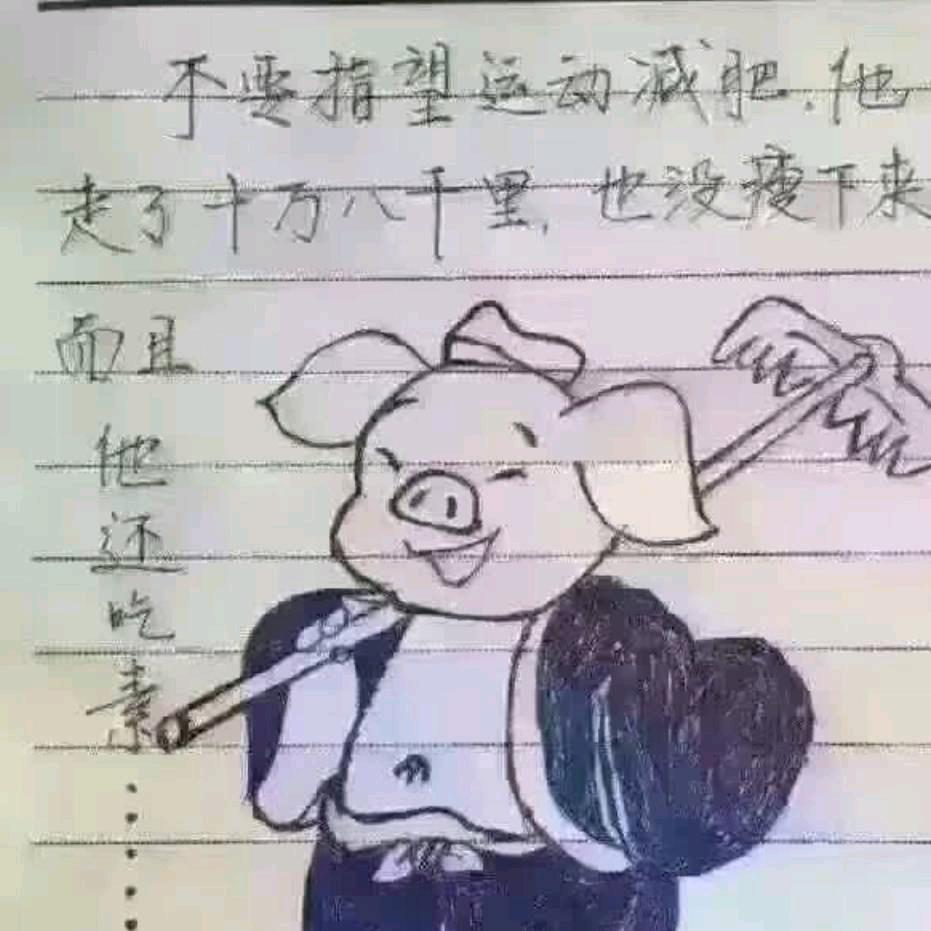 不要指望运动减肥.他
走了十万八千里,也没瘦下来
而且
他
还
吃
素
······